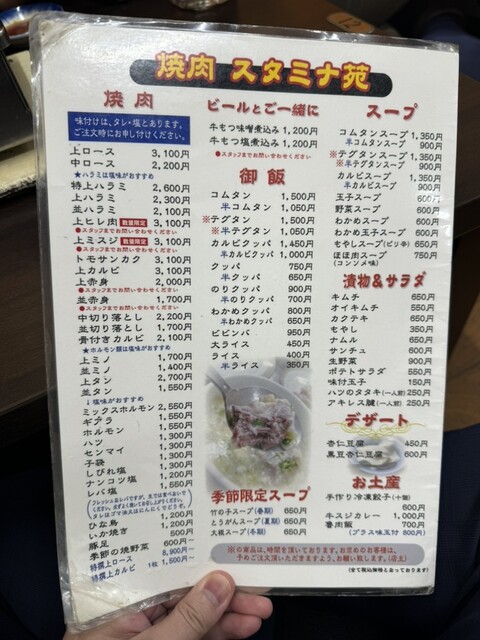 焼肉 スタミナ苑
焼肉
味付けは、タレ・塩とあります。
ご注文時にお申し付けください。
上ロース 3,100円
中ロース 2,200円
★ハラミは塩味がおすすめ
特上ハラミ 2,600円
上ハラミ 2,300円
並ハラミ 2,100円
上ヒレ肉 数量限定 3,100円
●スタッフまでお問い合わせください
上ミスジ 数量限定 3,100円
●スタッフまでお問い合わせください
トモサンカク 3,100円
上カルビ 3,100円
上赤身 2,000円
●スタッフまでお問い合わせください
並赤身 1,700円
●スタッフまでお問い合わせください
中切り落とし 2,200円
並切り落とし 1,700円
骨付きカルビ 2,100円
★ホルモン類は塩味がおすすめ
上ミノ 1,700円
並ミノ 1,400円
上タン 2,700円
並タン 1,550円
↓塩味がおすすめ
ミックスホルモン 2,550円
ギアラ 1,550円
ホルモン 1,550円
ハツ 1,300円
センマイ 1,300円
子袋 1,300円
しびれ塩 1,200円
ナンコツ塩 1,200円
レバ塩 1,550円
フレッシュなレバですが、生では食べないで
ください。必ずよく焼いてお召し上がりください。
タレはゴマ油又はにんにくでどうぞ。
ひな鳥 1,200円
いか焼き 500円
豚足 600円～
季節の焼野菜 600円～
特撰上ロース 8,900円～
特撰上カルビ 1枚 1,500円～
ビールとご一緒に
牛もつ味噌煮込み 1,200円
牛もつ塩煮込み 1,200円
●スタッフまでお問い合わせください
御飯
コムタン 1,500円
半コムタン 1,050円
※テグタン 1,500円
※半テグタン 1,050円
カルビクッパ 1,450円
半カルビクッパ 1,000円
クッパ 750円
半クッパ 650円
のりクッパ 900円
半のりクッパ 700円
わかめクッパ 800円
半わかめクッパ 650円
ビビンバ 950円
大ライス 450円
ライス 400円
半ライス 350円
季節限定スープ
竹の子スープ(春期) 650円
とうがんスープ(夏期) 650円
大根スープ(冬期) 650円
スープ
コムタンスープ 1,350円
半コムタンスープ 900円
※テグタンスープ 1,350円
※半テグタンスープ 900円
カルビスープ 1,350円
半カルビスープ 900円
玉子スープ 600円
野菜スープ 600円
わかめスープ 600円
わかめ玉子スープ 650円
もやしスープ(ピリ辛) 650円
ほほ肉スープ 750円
(コンソメ味)
漬物&サラダ
キムチ 650円
オイキムチ 550円
カクテキ 650円
もやし 350円
ナムル 650円
サンチュ 600円
生野菜 900円
ポテトサラダ 550円
味付玉子 150円
ハツのタタキ(一人前) 250円
アキレス腱(一人前) 250円
デザート
杏仁豆腐 450円
黒豆杏仁豆腐 600円
お土産
手作り冷凍餃子(十個)
900円
牛スジカレー 1,000円
魯肉飯 700円
(プラス味玉付 800円)
※の商品は、時間を頂いております。お急ぎのお客様は、
予めご注文頂いただきますよう、お願い致します。(店主)
(全て税込価格となっております)
12